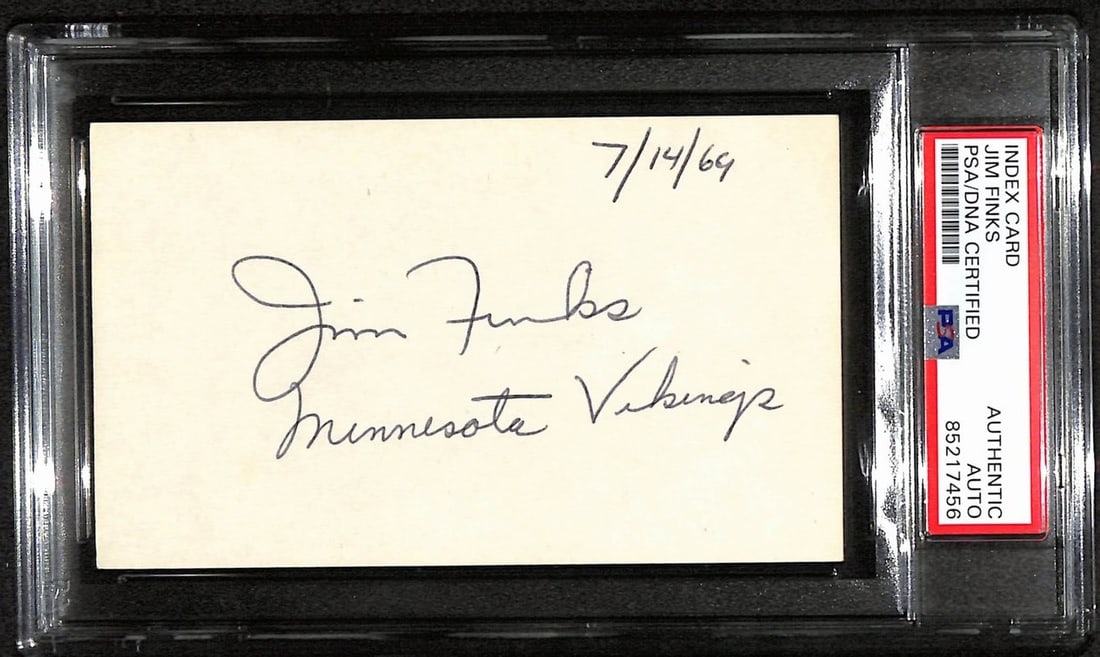 7/14/69
Jim Finks
Minnesota Vikings
INDEX CARD
JIM FINKS
PSA/DNA CERTIFIED
PSA
AUTHENTIC
AUTO
85217456